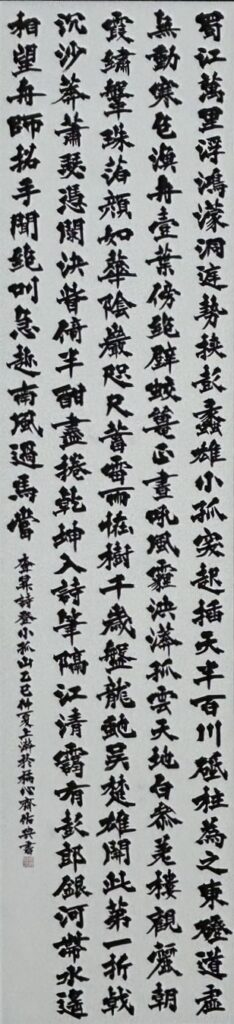 蜀江萬里浮鴻濛洞庭勢挾彭蠡雄小孤突起插天半百川砥柱為之東磴道虛
無動寒色漁舟壹葉傍絕壁蛟蜃正晝吼風霾泱漭孤雲天地白參差樓觀麗朝
霞繡鞶珠箔顏如華陰巖咫尺蓄雷雨怪樹千歲盤龍虵吳楚雄開此第一折戟
沉沙莽蕭瑟憑闌決眥倚半酣盡捲乾坤入詩筆隔江清霽有彭郎銀河帶水遙
相望舟師招手聞絕叫急趁南風過馬當
查昇詩登小孤山乙巳仲夏上澣於稱心齋佑興書